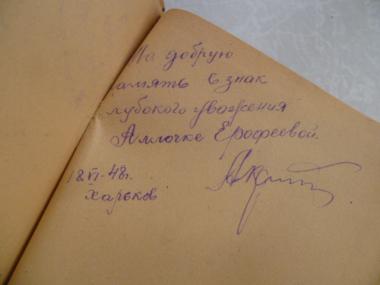 На добрую
память в знак
глубокого уважения
Аллочке Ерофеевой.
18 VI-48г.
Харьков